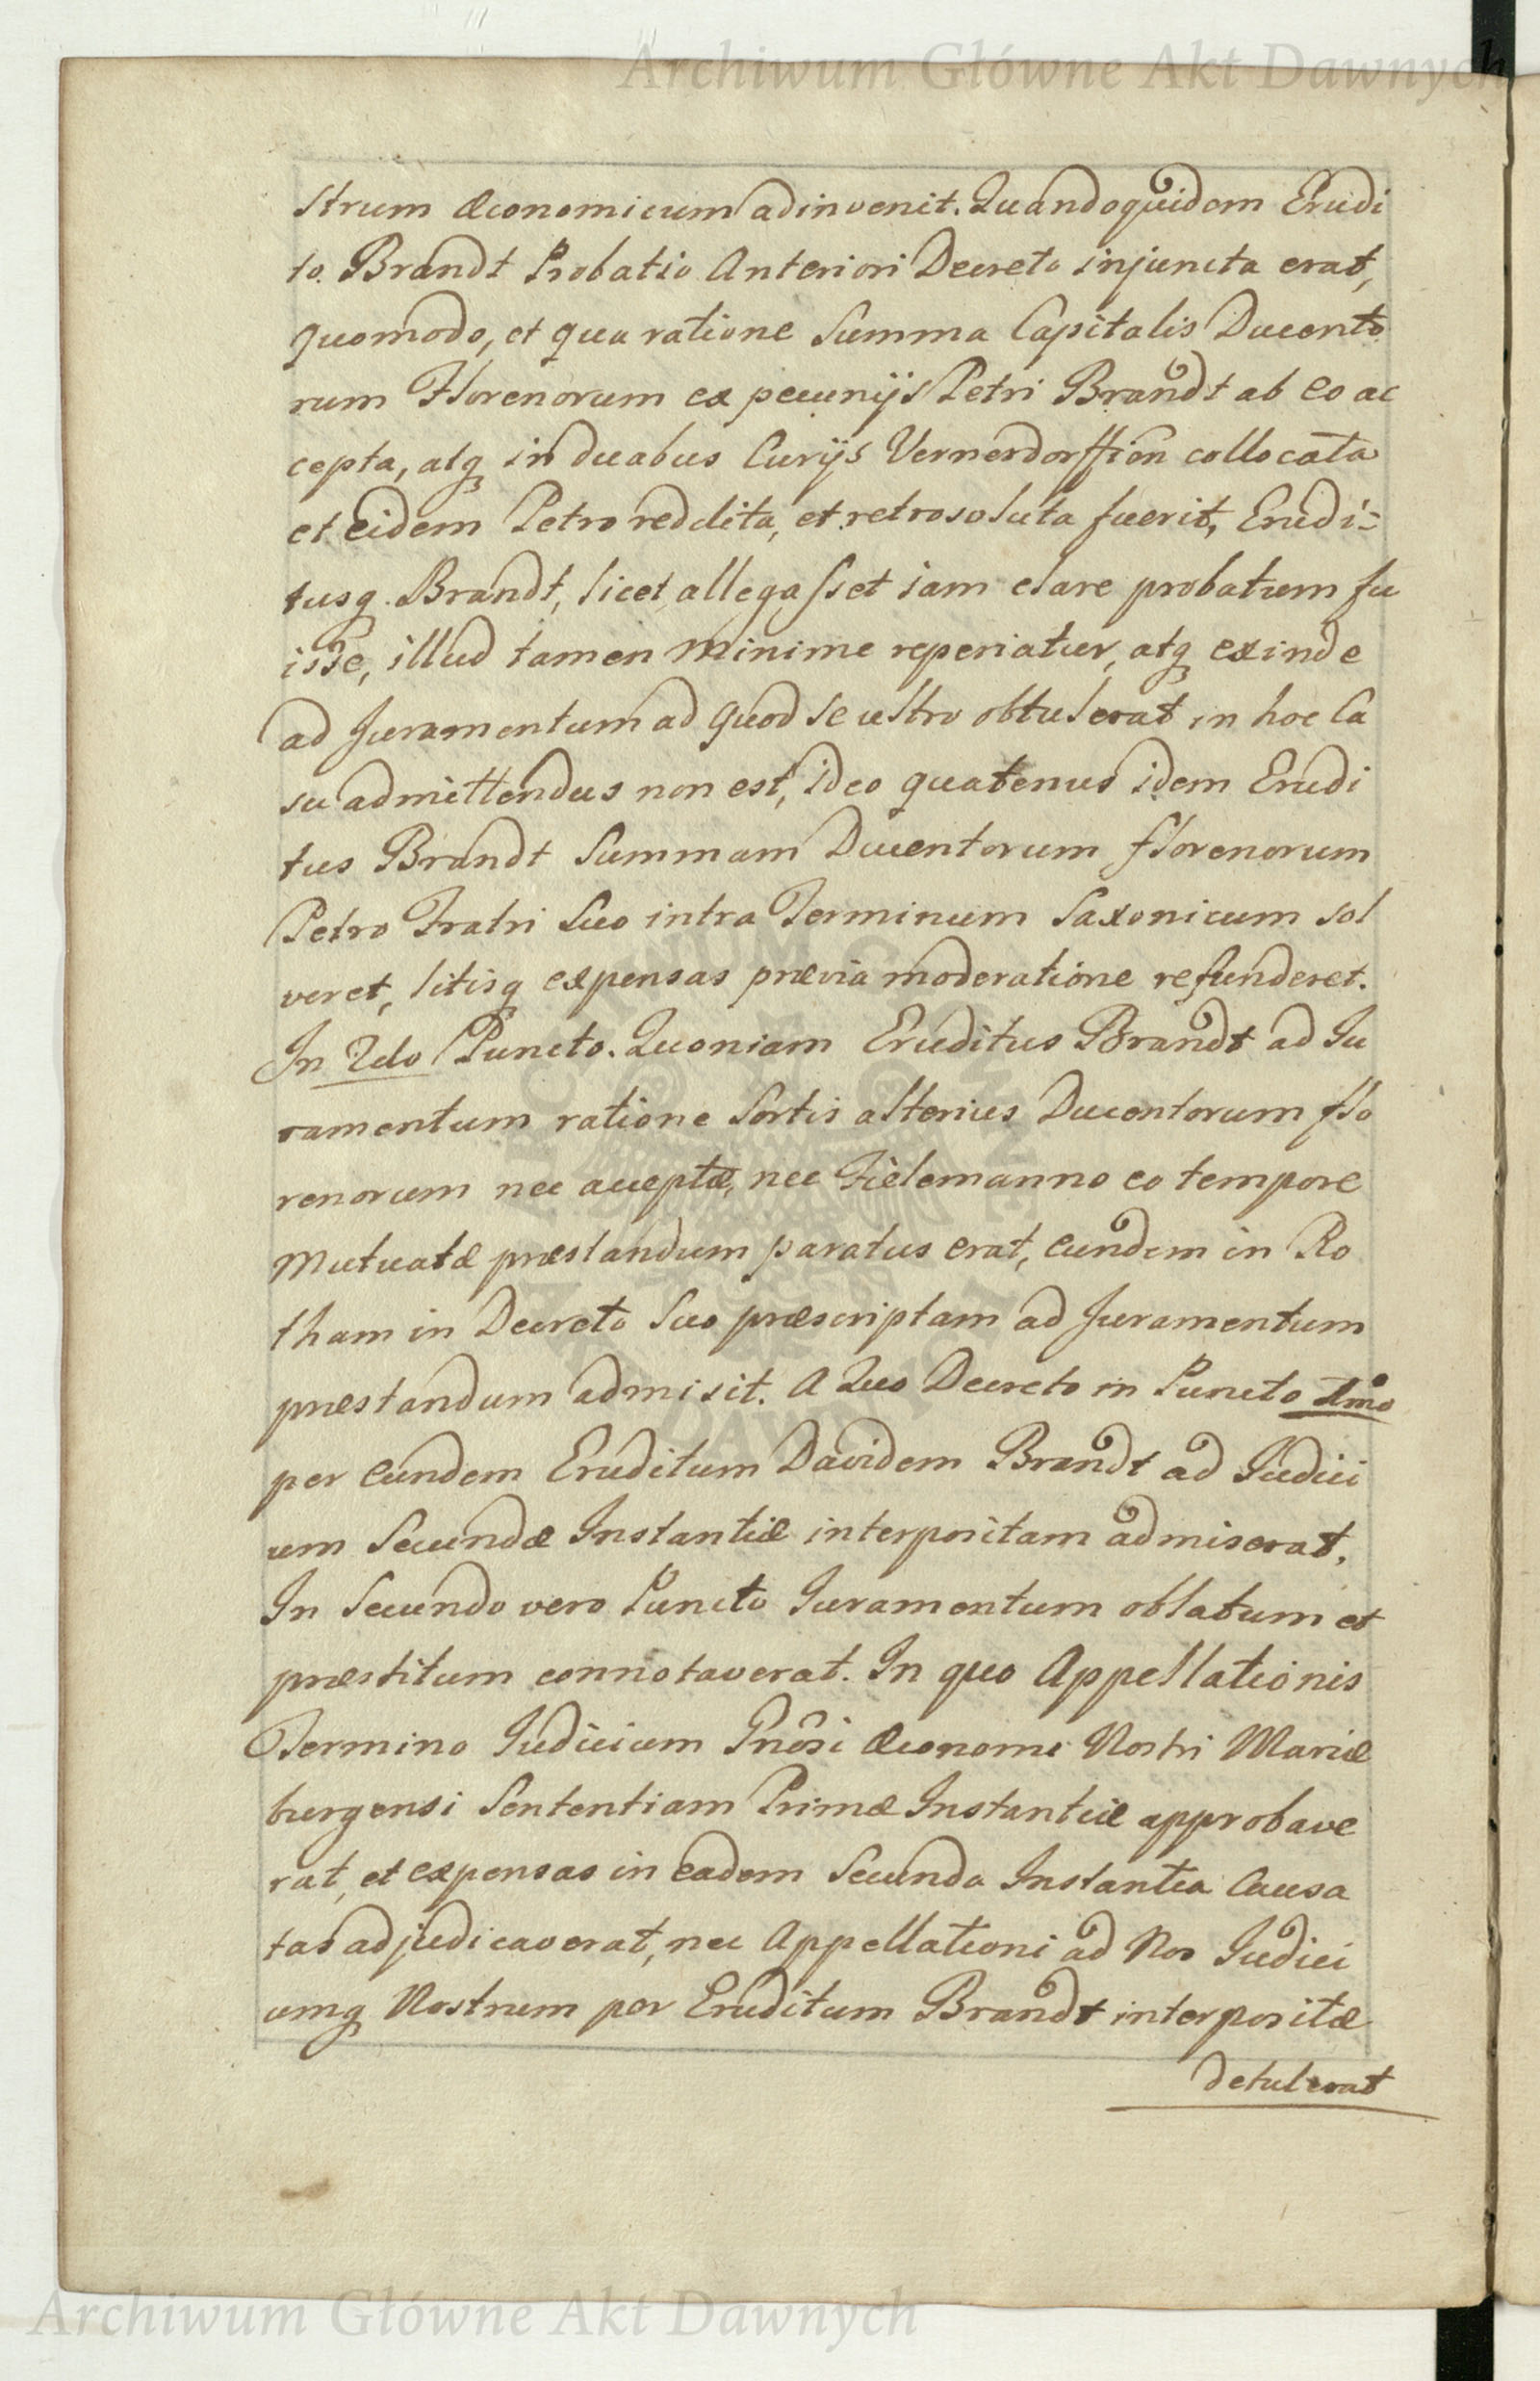 Archiwum Główne Akt Dawnych
strum œconomicum adinvenit. Quandoquidem Erudi
to. Brandt Probatio Anteriori Decreto injuncta erat,
quomodo, et qua ratione Summa Capitalis Ducento
rum Florenorum ex pecunijs Petri Brandt ab eo ac
cepta, atq in duabus Curijs Vernersdorffien collocata
et eidem Petro reddita, et retrosoluta fuerit, Erudi=
tusq. Brandt, licet allegasset iam clare probatum fu
isse, illud tamen minime reperiatur, atq exinde
ad Juramentum ad quod se ultro obtulerat in hoc Ca
su admittendus non est, ideo quatenus idem Erudi
tus Brandt Summam Ducentorum florenorum
Petro Fratri Suo intra Terminum Saxonicum sol
veret, litisq expensas prævia moderatione refunderet.
In 2do Puncto. Quoniam Eruditus Brandt ad Ju
ramentum ratione Sortis alterius Ducentorum flo
renorum nec acceptæ, nec Tielemanno eo tempore
Mutuatæ præstandum paratus erat, eundem in Ro
tham in Decreto Suo præscriptam ad Juramentum
præstandum admisit. A Quo Decreto in Puncto 1mo
per eundem Eruditum Davidem Brandt ad Judici
um Secundæ Instantiæ interpositam admiserat,
In Secundo vero Puncto Juramentum oblatum et
præstitum connotaverat. In quo Appellationis
Termino Judicium Gnôsi Œconomi Nostri Mariæ
burgensi Sententiam Primæ Instantiæ approbave
rat, et expensas in eadem Secunda Instantia Causa
tas adjudicaverat, nec Appellationi ad Nos Judici
umq Nostrum per Eruditum Brandt interpositæ
detulerat
Archiwum Główne Akt Dawnych